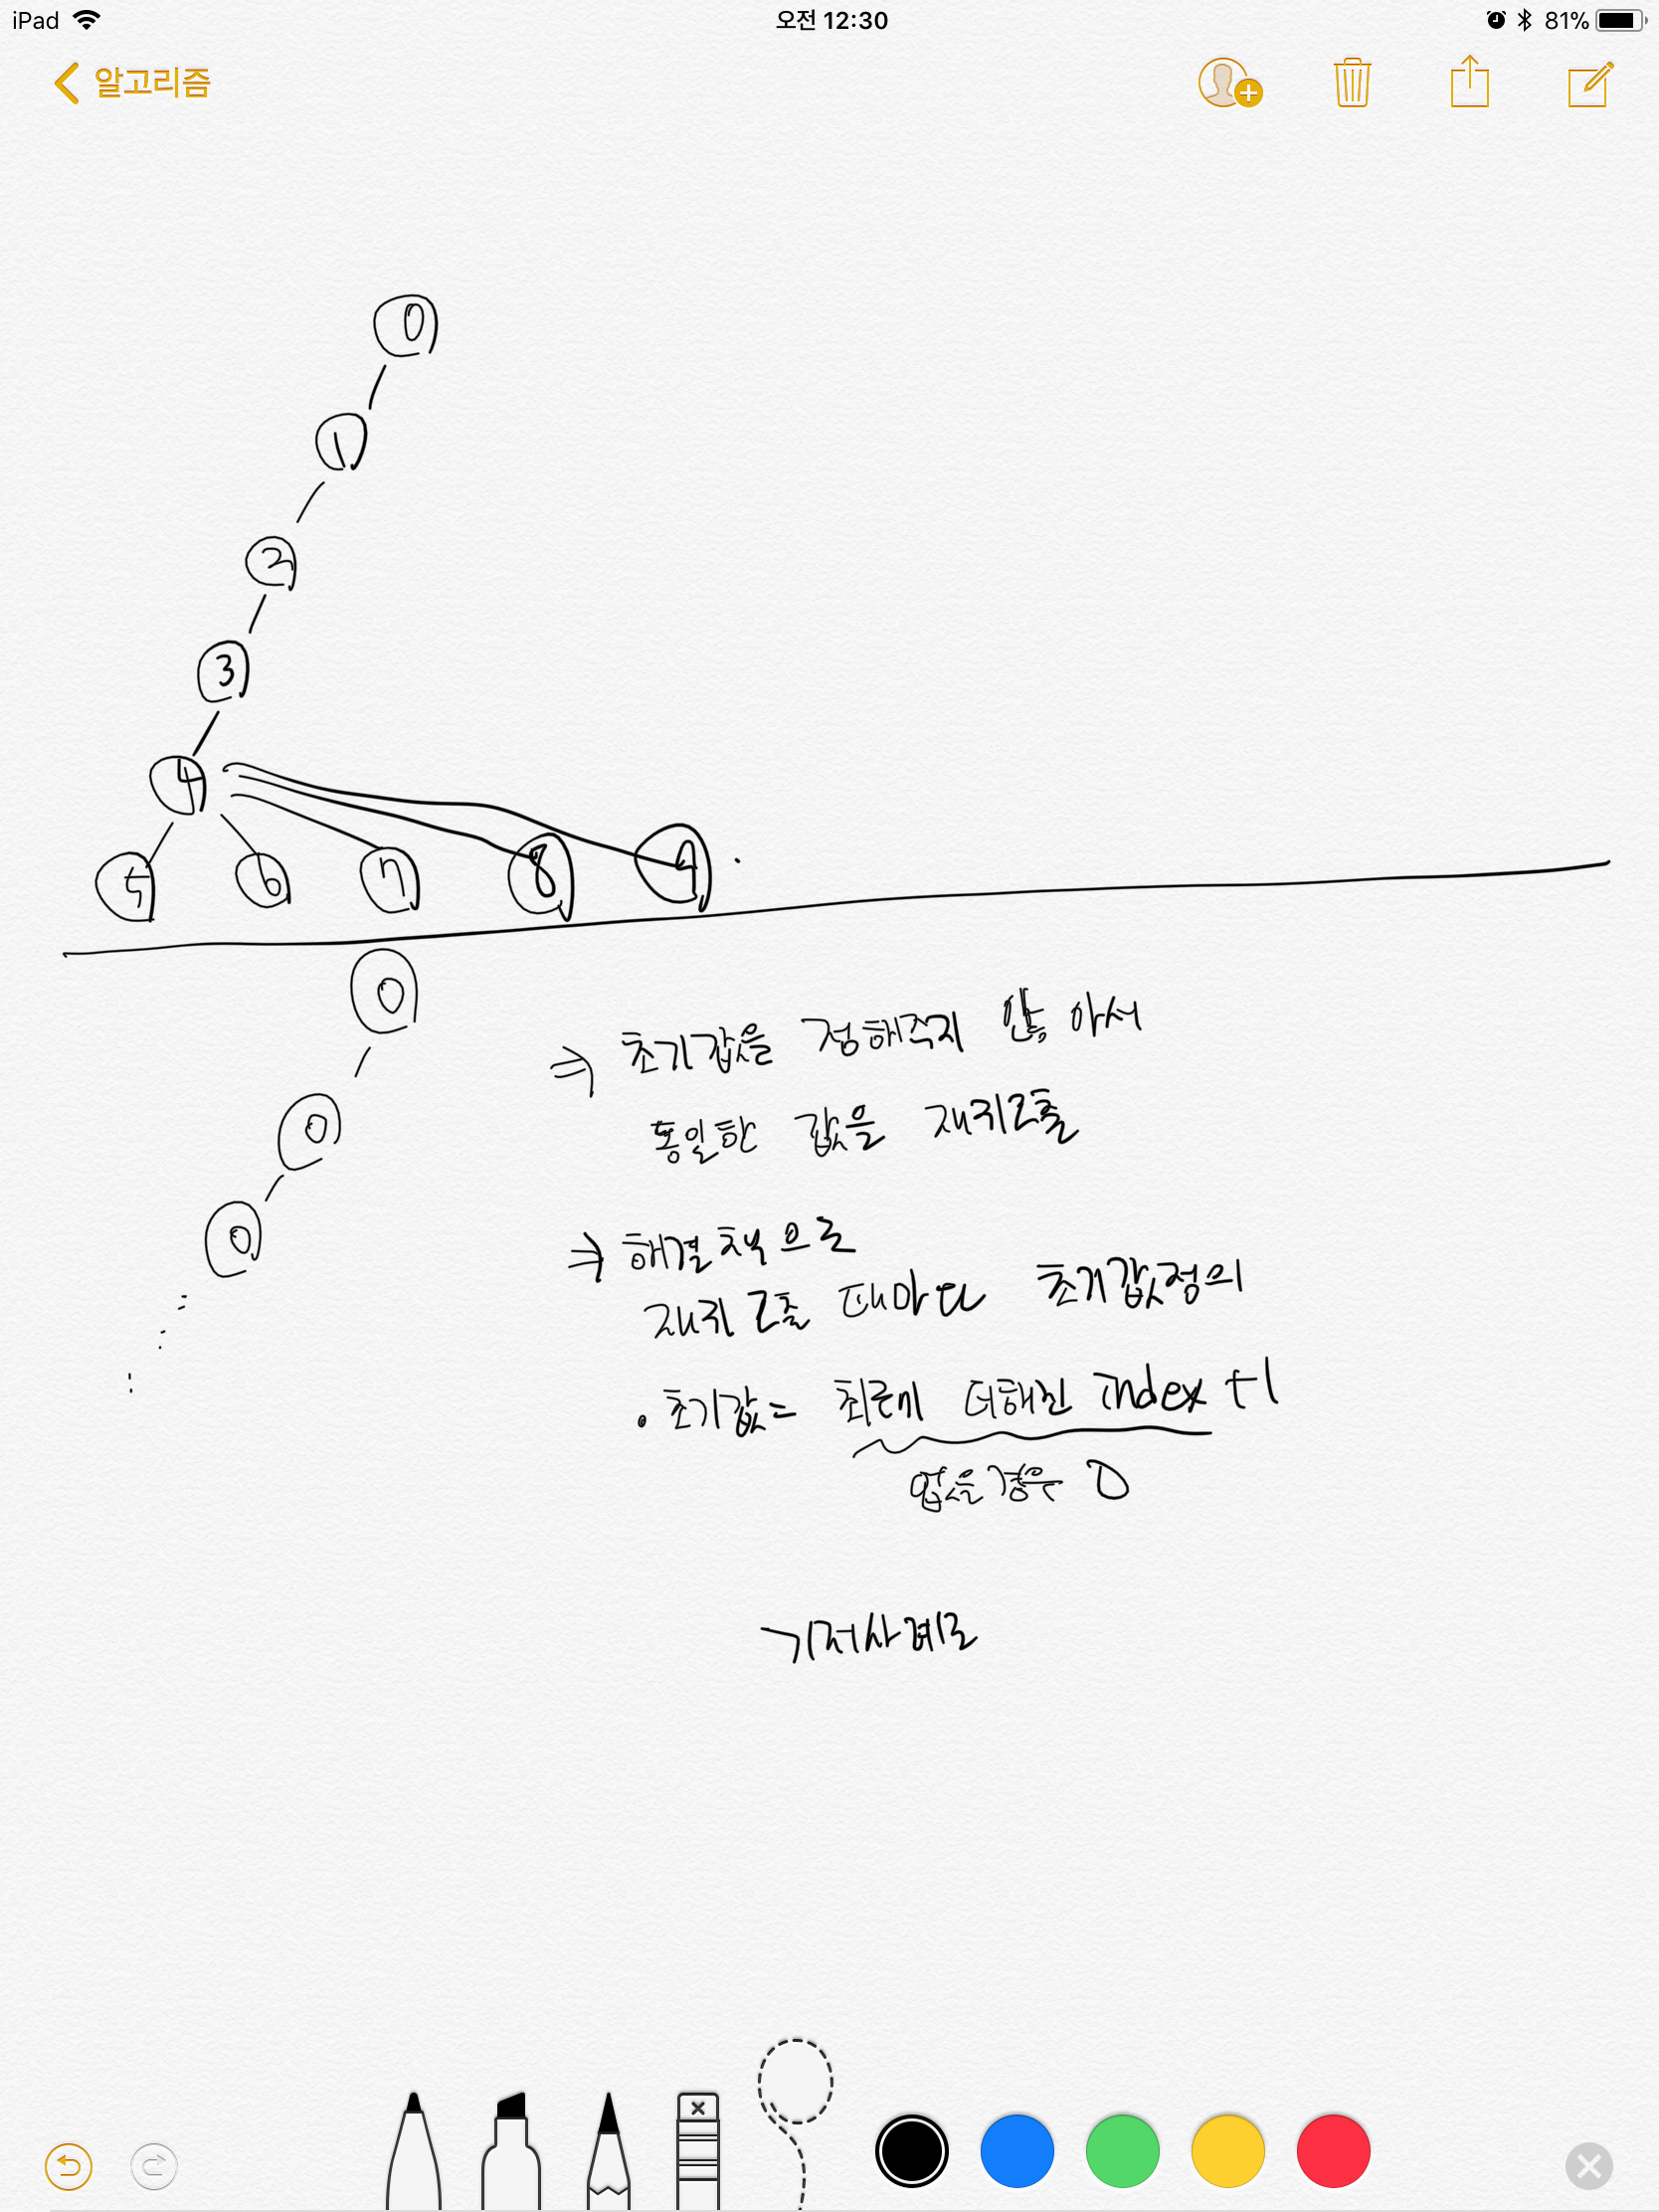 iPad 오전 12:30 81%
알고리즘
0
1
2
3
4
5 6 7 8 9
0
0
0
⇒ 초기값을 정해주지 않아서
동일한 값을 재귀호출
⇒ 해결책으로
재귀호출 때마다 초기값정의
• 초기값 = 최근에 더해진 index +1
없을경우 0
기저사례로